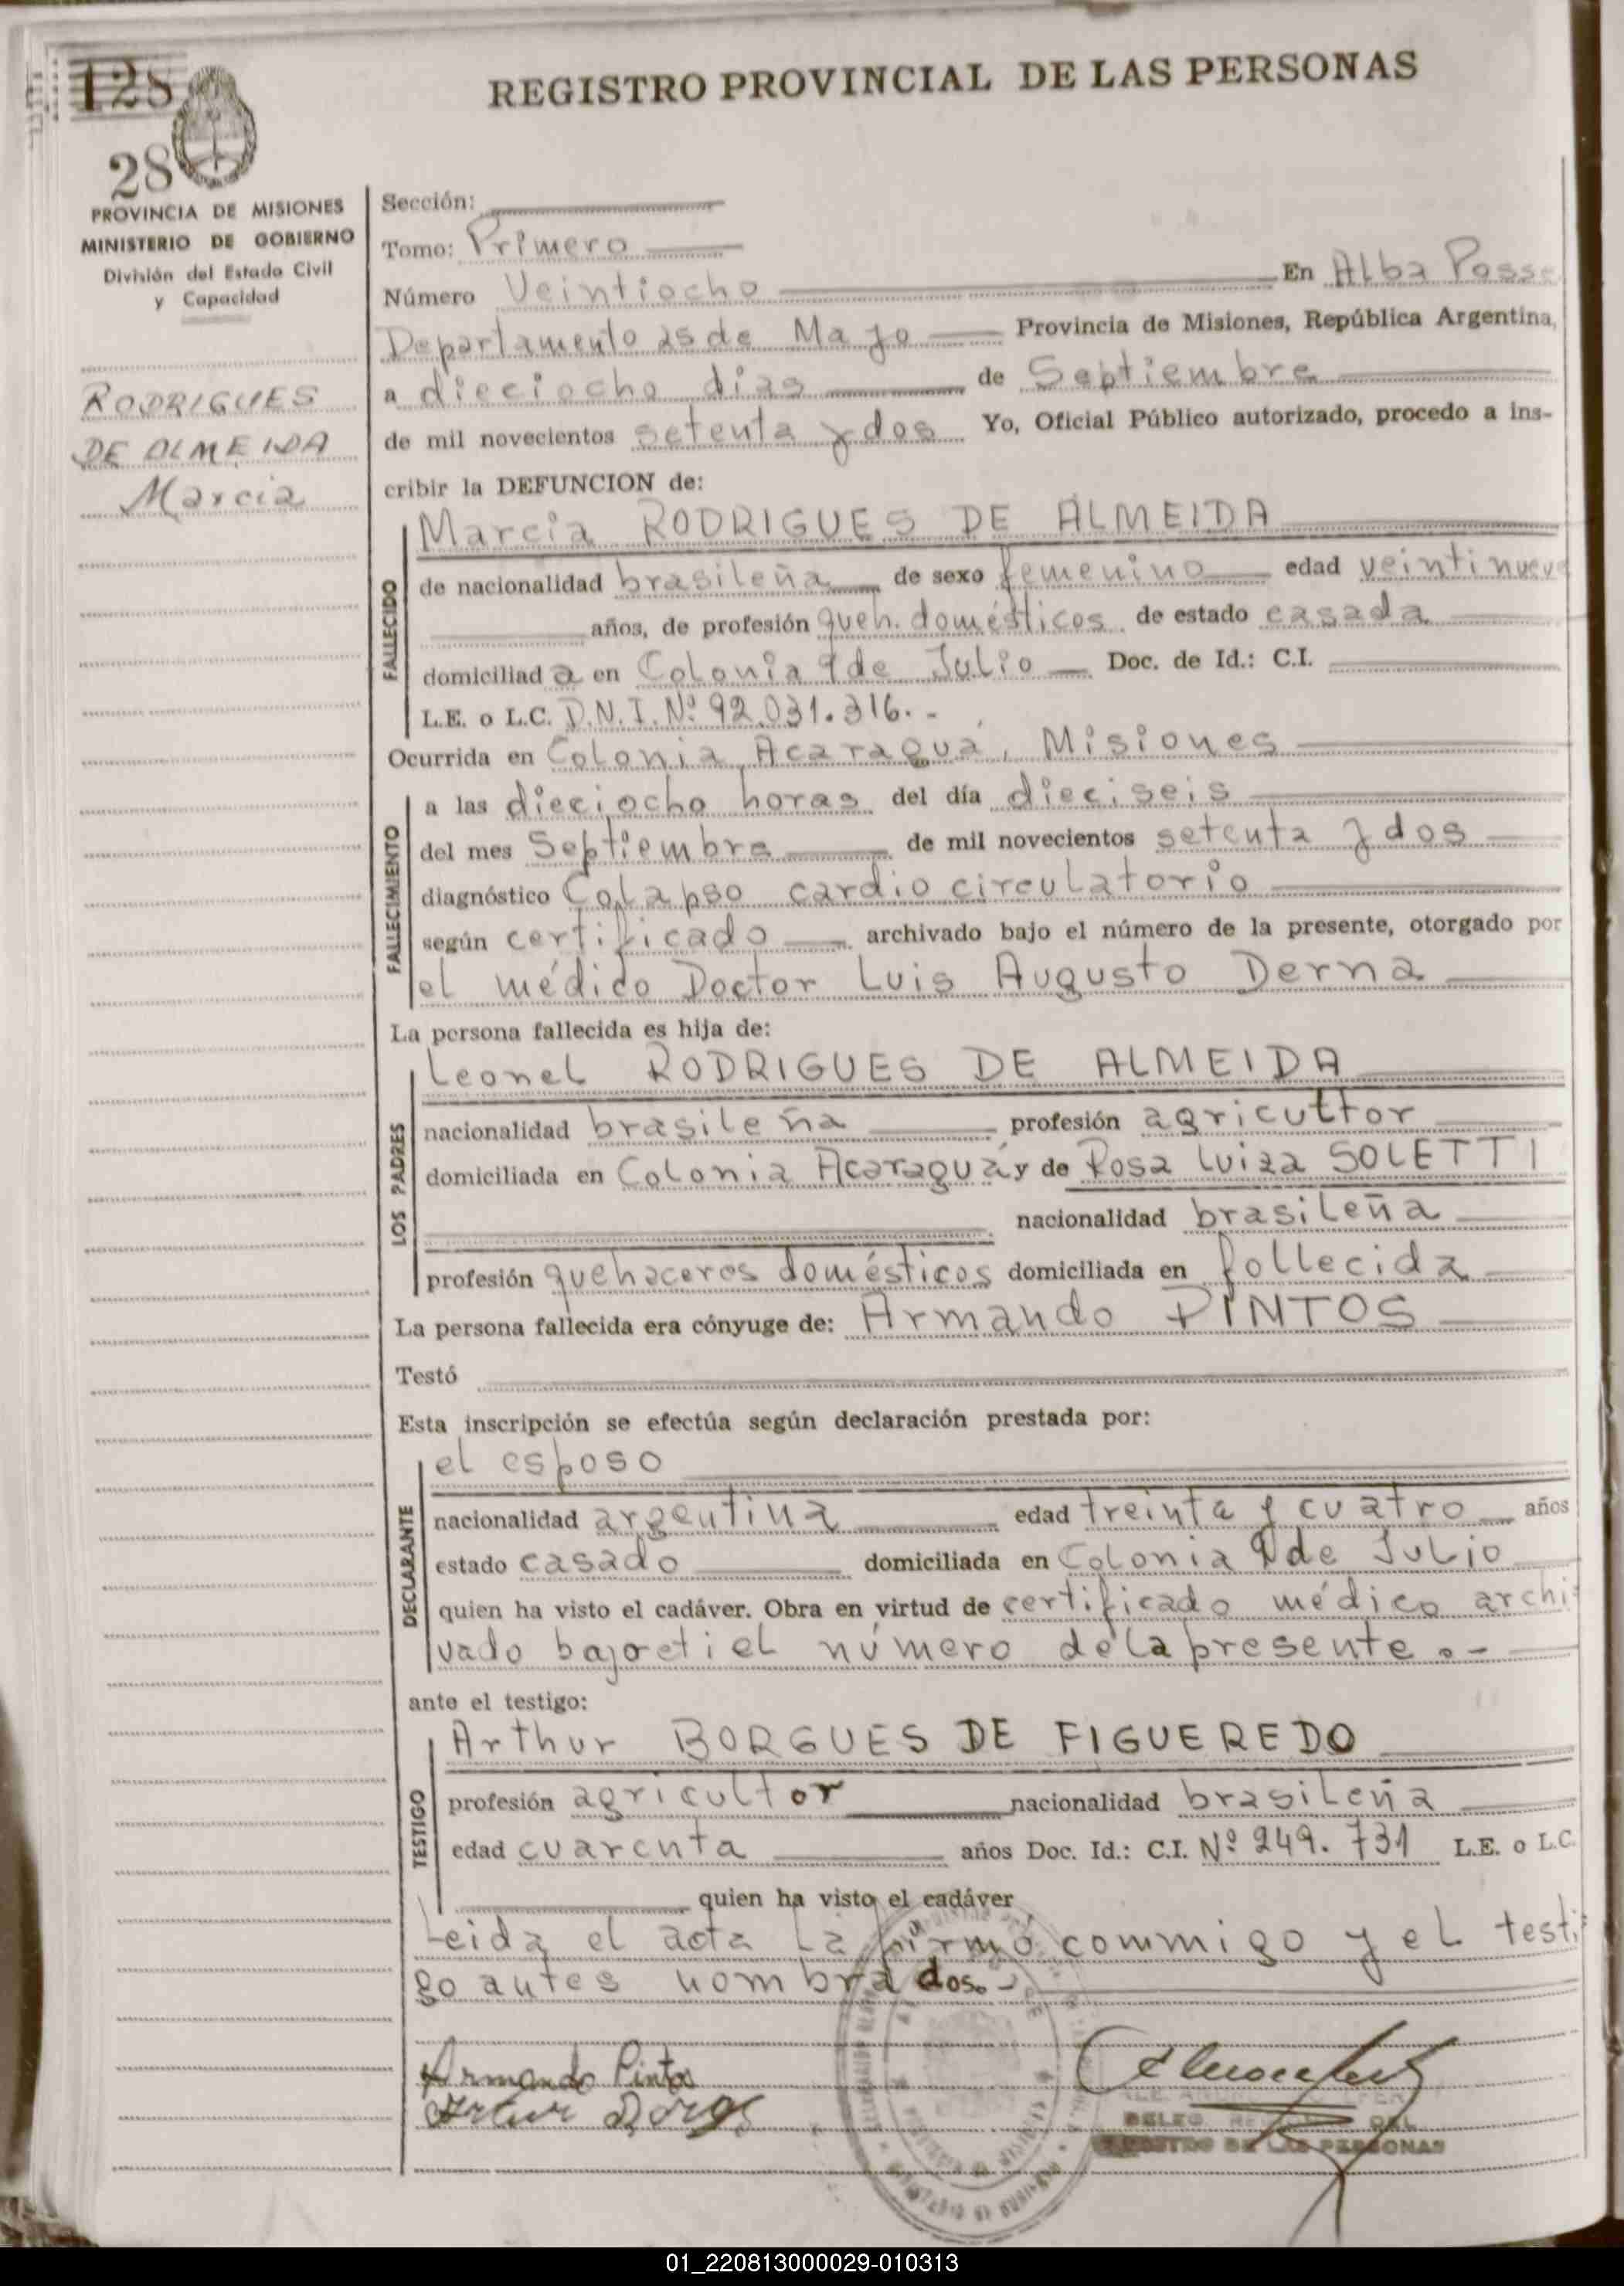 128
REGISTRO PROVINCIAL DE LAS PERSONAS
28
PROVINCIA DE MISIONES
MINISTERIO DE GOBIERNO
División del Estado Civil
y Capacidad
RODRIGUES
DE ALMEIDA
Marcia
Sección:
Tomo: Primero
Número Veintiocho En Alba Posse
Departamento 25 de Mayo Provincia de Misiones, República Argentina,
a dieciocho días de Septiembre
de mil novecientos setenta y dos Yo, Oficial Público autorizado, procedo a ins-
cribir la DEFUNCION de:
FALLECIDO
Marcia RODRIGUES DE ALMEIDA
de nacionalidad brasileña de sexo femenino edad veintinueve
años, de profesión queh. domésticos de estado casada
domiciliad a en Colonia 9 de Julio Doc. de Id.: C.I.
L.E. o L.C. D.N.I. Nº 92.031.316.-
Ocurrida en Colonia Acaraguá, Misiones
FALLECIMIENTO
a las dieciocho horas del día dieciseis
del mes Septiembre de mil novecientos setenta y dos
diagnóstico Colapso cardiocirculatorio
según certificado archivado bajo el número de la presente, otorgado por
el médico Doctor Luis Augusto Derna
La persona fallecida es hija de:
LOS PADRES
Leonel RODRIGUES DE ALMEIDA
nacionalidad brasileña profesión agricultor
domiciliada en Colonia Acaraguá y de Rosa Luiza SOLETTI
nacionalidad brasileña
profesión quehaceres domésticos domiciliada en fallecida
La persona fallecida era cónyuge de: Armando PINTOS
Testó
Esta inscripción se efectúa según declaración prestada por:
DECLARANTE
el esposo
nacionalidad argentina edad treinta y cuatro años
estado casado domiciliada en Colonia 9 de Julio
quien ha visto el cadáver. Obra en virtud de certificado médico archi
vado bajo el número de la presente.-
ante el testigo:
TESTIGO
Arthur BORGUES DE FIGUEREDO
profesión agricultor nacionalidad brasileña
edad cuarenta años Doc. Id.: C.I. Nº 249.731 L.E. o L.C.
quien ha visto el cadáver
Leida el acta la firmó conmigo y el testi
go antes nombrados.-
Armando Pintos
REGISTRO DE LAS PERSONAS
01_220813000029-010313